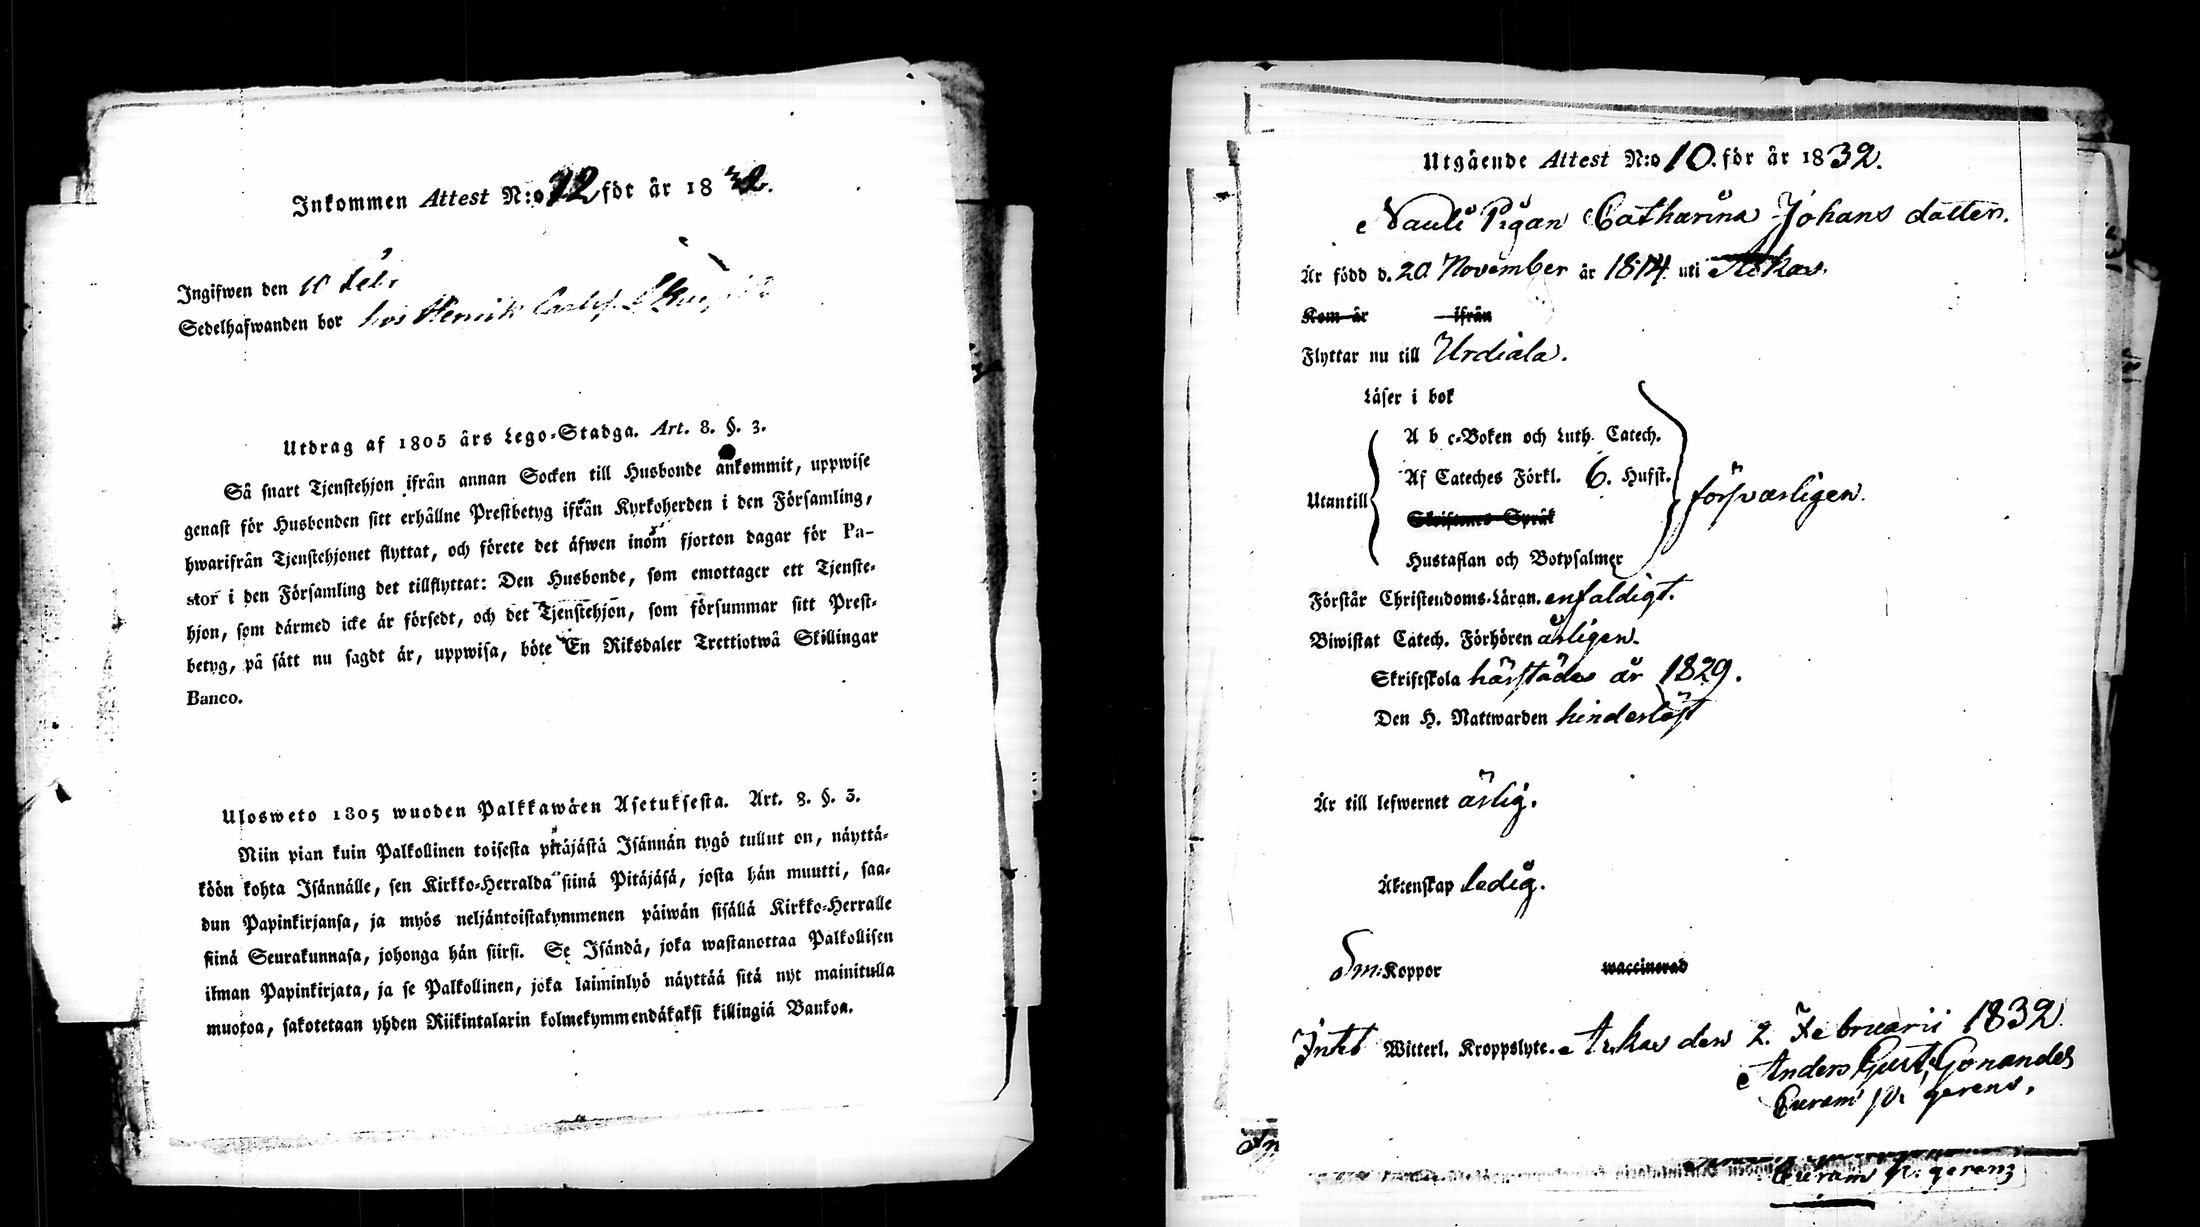 Inkommen Attest N:o 12 för år 1832.
Ingifwen den 10 Febr
Sedelhafwanden bor hos Henrik
Utdrag af 1805 års Lego-Stadga. Art. 8. §. 3.
Så snart Tjenstehjon ifrån annan Socken till Husbonde ankommit, uppwise
genast för Husbonden sitt erhållne Prestbetyg ifrån Kyrkoherden i den Församling,
hwarifrån Tjenstehjonet flyttat, och förete det äfwen inom fjorton dagar för Pa-
stor i den Församling det tillflyttat: Den Husbonde, som emottager ett Tjenste-
hjon, som därmed icke är försedt, och det Tjenstehjon, som försummar sitt Prest-
betyg, på sätt nu sagdt är, uppwisa, böte En Riksdaler Trettiotwå Skillingar
Banco.
Ulosweto 1805 wuoden Palkkawäen Asetuksesta. Art. 8. §. 3.
Niin pian kuin Palkollinen toisesta pitäjästä Isännän tygö tullut on, näyttä-
köön kohta Isännälle, sen Kirkko-Herralda siinä Pitäjäsä, josta hän muutti, saa-
dun Papinkirjansa, ja myös neljäntoistakymmenen päiwän sisällä Kirkko-Herralle
siinä Seurakunnasa, johonga hän siirsi. Se Isändä, joka wastanottaa Palkollisen
ilman Papinkirjata, ja se Palkollinen, joka laiminlyö näyttää sitä nyt mainitulla
muotoa, sakotetaan yhden Riikintalarin kolmekymmendäkaksi killingiä Bankoa.
Utgående Attest N:o 10. för år 1832.
Nauli Pigan Catharina Johans dotter.
Är född d. 20 November år 1814 uti Akkas.
Kom år ifrån
Flyttar nu till Urdiala.
Läser i bok
A b c-Boken och Luth. Catech.
Af Cateches Förkl. 6. Hufst.
Utantill försvarligen.
Skriftenes Språk
Hustaflan och Botpsalmer
Förstår Christendoms-Läran. enfaldigt.
Biwistat Catech. Förhören ärligen.
Skriftskola härstädes år 1829.
Den H. Nattwarden hinderlöst
Är till lefwernet ärlig.
Äktenskap ledig.
Sm: Koppor waccinerad
Intet Witterl. Kroppslyte. Akkas den 2. Februarii 1832
Anders Gust. Gonandes
Curam p. gerens.
Curam p. gerens